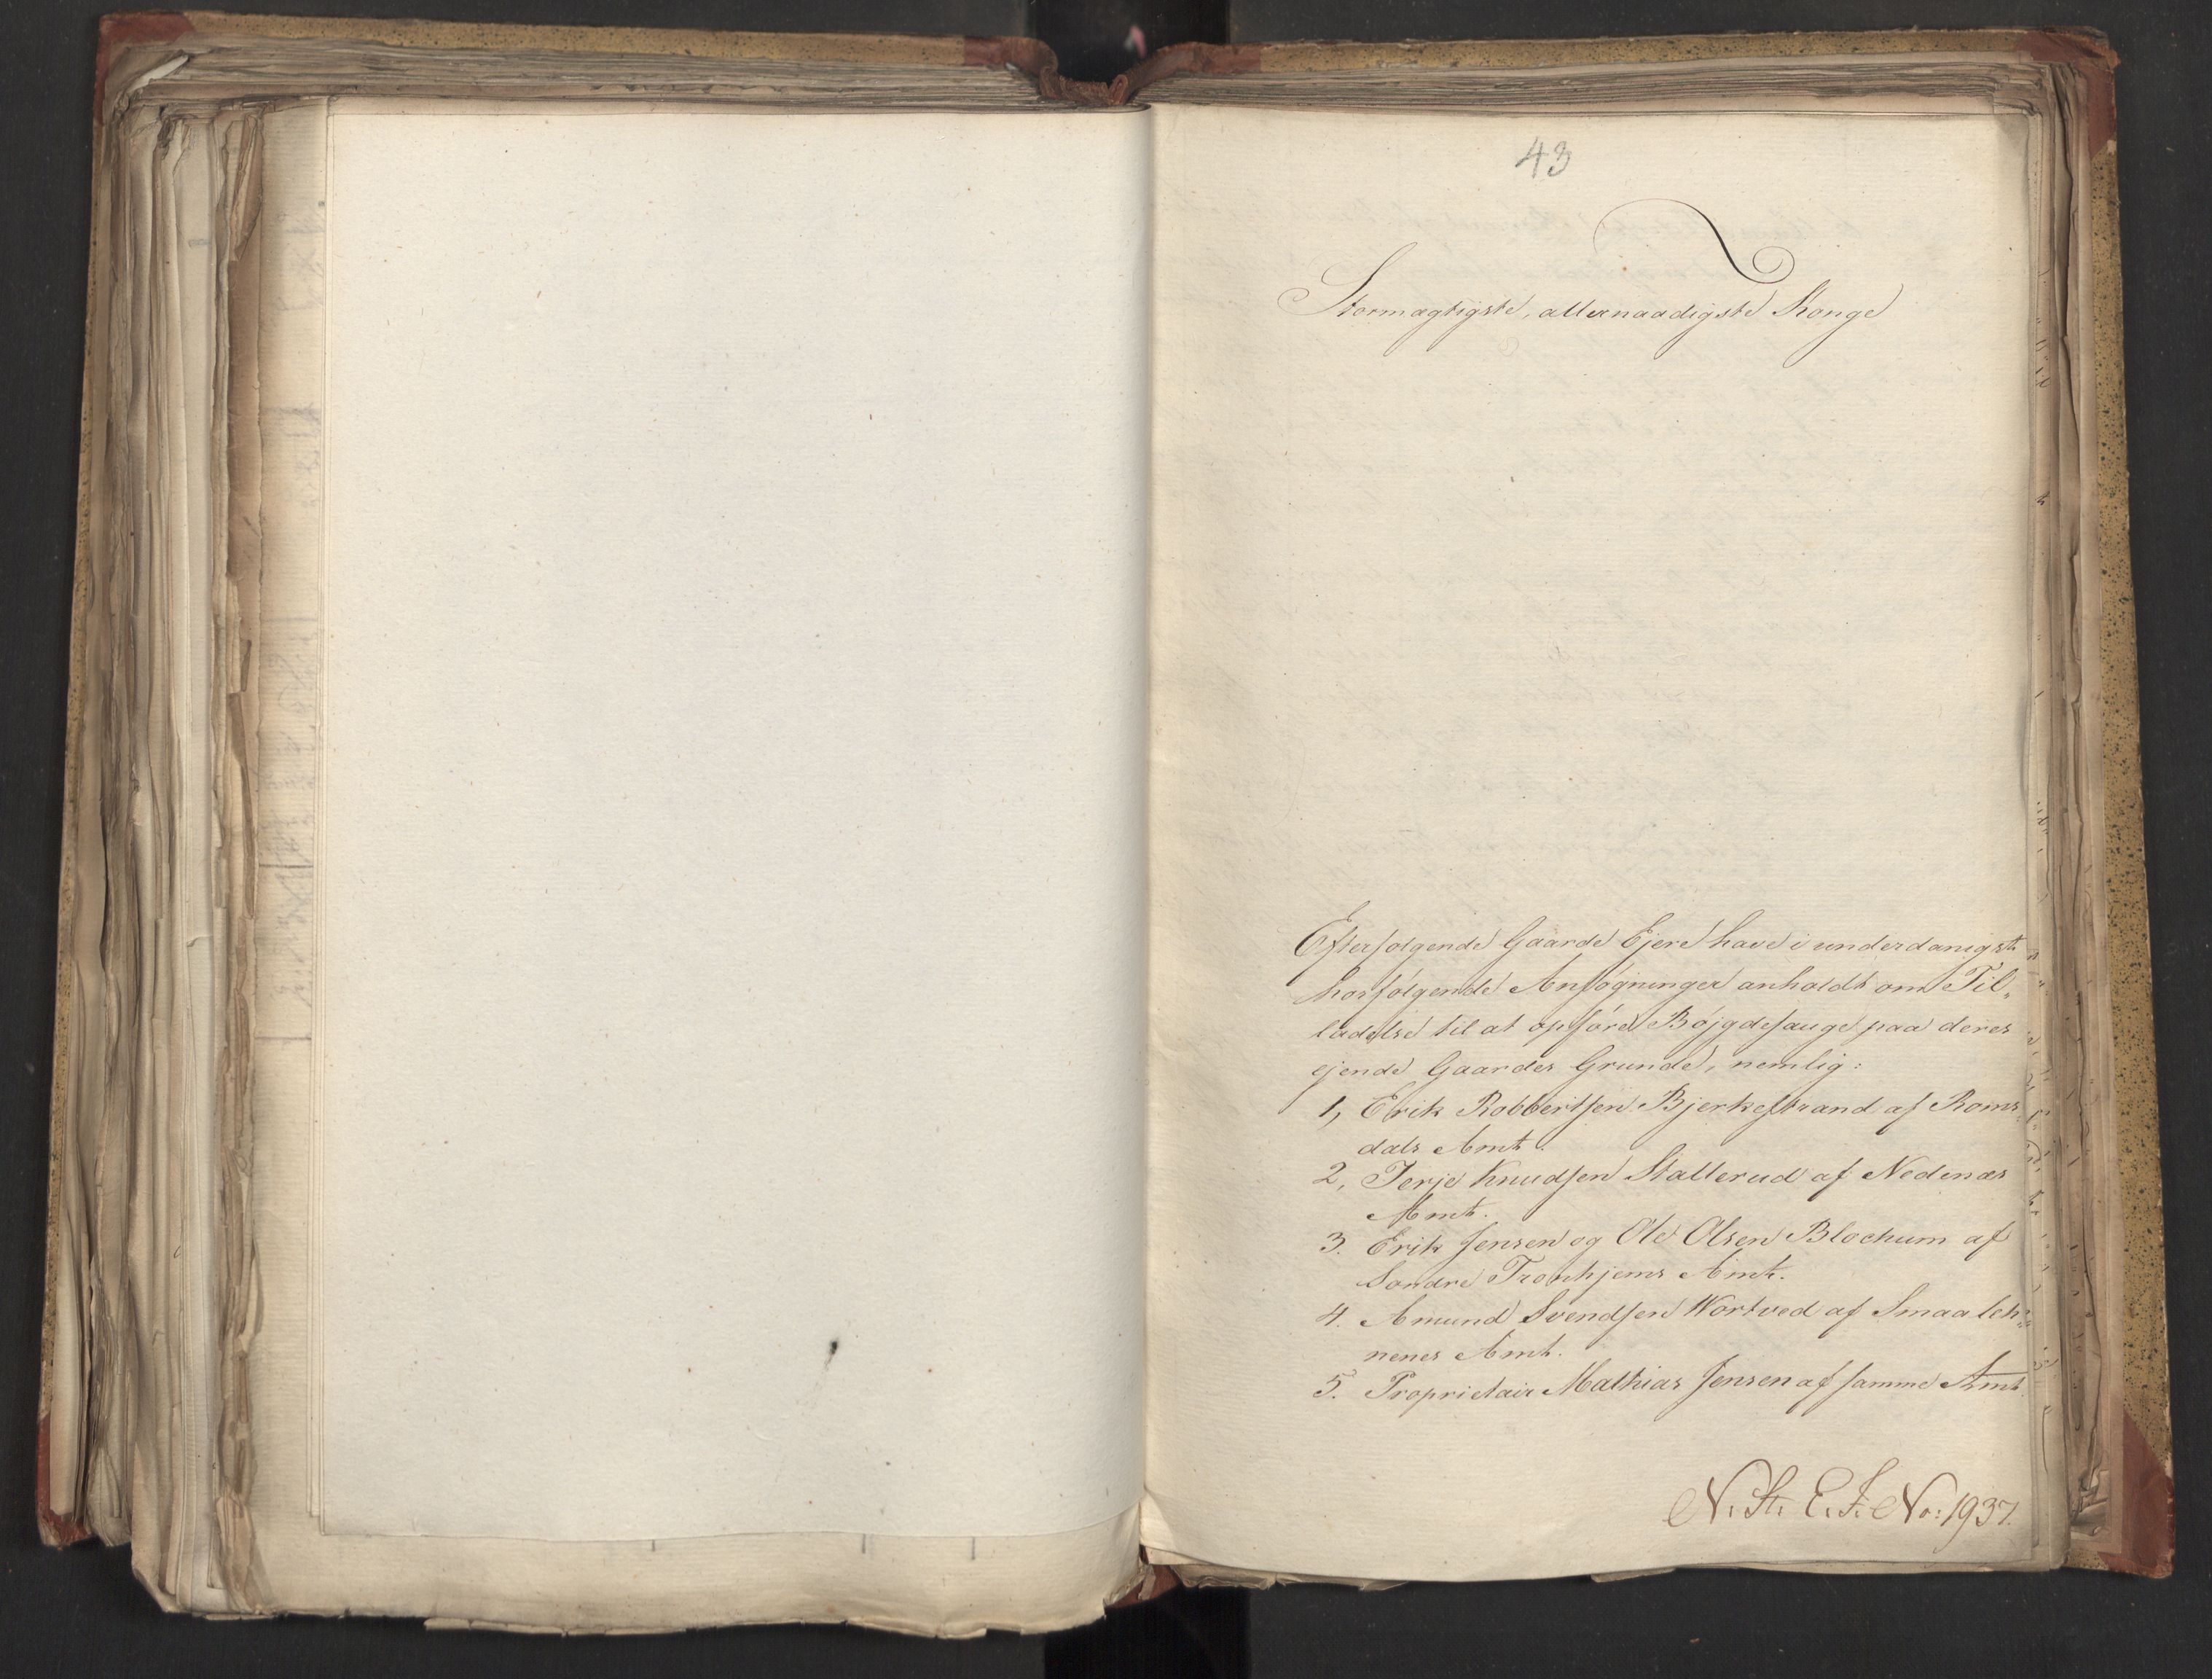 43
Stormægtigste, allernaadigste Konge
Efterfølgende Gaarde Ejere have i underdanigst
hosfølgende Ansøgninger anholdt om Til„
ladelse til at opføre Bøjgdesauge paa deres
ejende Gaardes Grunde, nemlig:
1, Erik Robbertsen Bjerkestrand af Roms
dals Amt.
2, Terje Knudsen Stallerud af Nedenæs
Amt.
3. Erik Jensen og Ole Olsen Blochum af
Søndre Tronhjems Amt.
4. Amund Svendsen Wortved af Smaaleh„
nenes Amt.
5. Proprietair Mathias Jensen af samme Amt.
N. St. E. J. No: 1937.